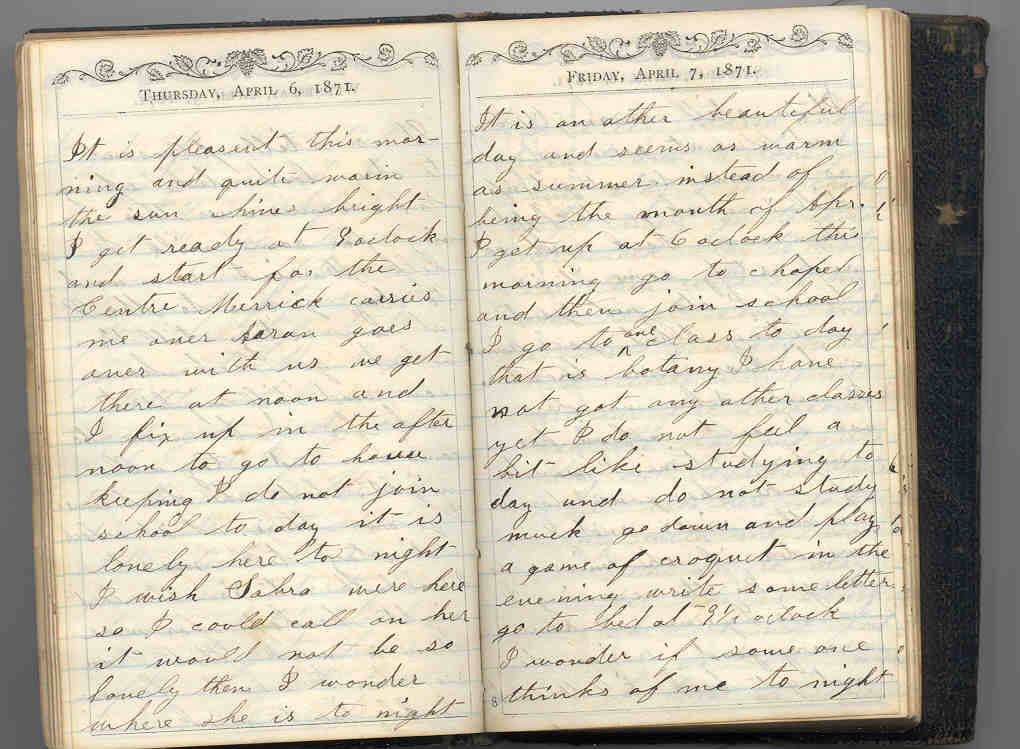 THURSDAY, APRIL 6, 1871.
It is pleasent this mor-
ning and quite warm
the sun shines bright
I get ready at 9 oclock
and start for the
Centre Merrick carries
me over Saran goes
over with us we get
there at noon and
I fix up in the after
noon to go to house
keeping I do not join
school to day it is
lonely here to night
I wish Sabra were here
so I could call on her
it would not be so
lonely then I wonder
where she is to night
FRIDAY, APRIL 7, 1871.
It is an other beautiful
day and seems as warm
as summer instead of
being the month of Apr.
I get up at 6 oclock this
morning go to chapel
and then join school
I go to one class to day
that is botany I have
not got any other classes
yet I do not feel a
bit like studying to
day and do not study
much go down and play
a game of croquet in the
evening write some letter
go to bed at 9½ oclock
I wonder if some one
thinks of me to night